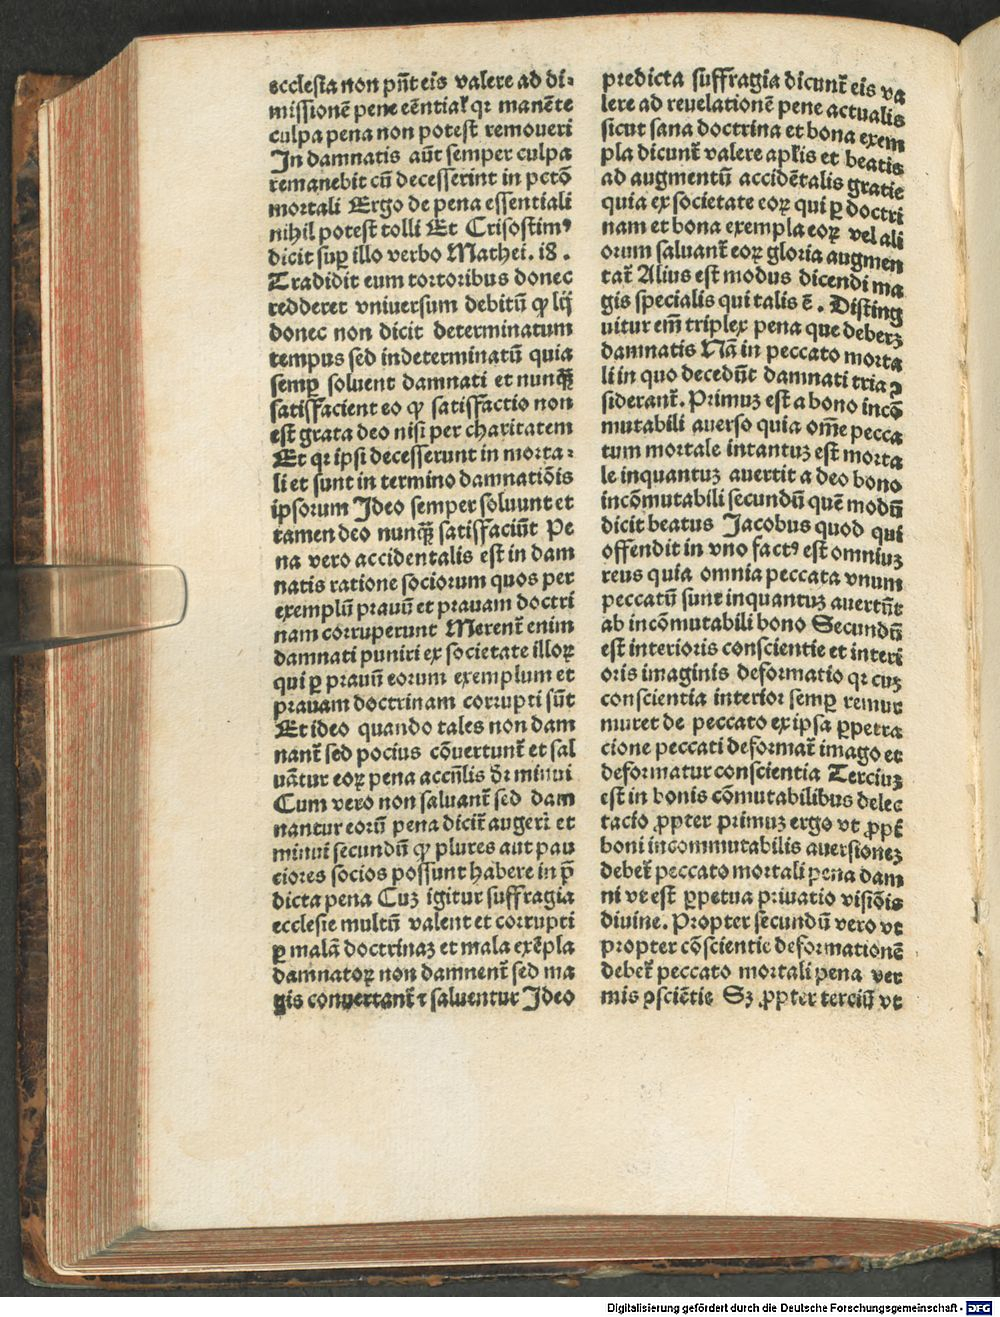 ecclesia non pn̄t eis valere ad di⸗
missionē pene eēntiał qꝛ manēte
culpa pena non potest remoueri
In damnatis aūt semper culpa
remanebit cū decesserint in pctō
mortali Ergo de pena essentiali
nihil potest tolli Et Crisostimꝰ
dicit suꝑ illo verbo Mathei. i8.
Tradidit eum tortoribus donec
redderet vniuersum debitū ꝙ lꝫ
donec non dicit determinatum
tempus sed indeterminatū quia
semꝑ soluent damnati et nunꝙ̄
satisfacient eo ꝙ satisfactio non
est grata deo nisi per charitatem
Et qꝛ ipsi decesserunt in morta⸗
li et sunt in termino damnatiōis
ipsorum Ideo semper soluunt et
tamen deo nunꝙ̄ satisfaciūt Pe
na vero accidentalis est in dam
natis ratione sociorum quos per
exemplū prauū et prauam doctri
nam corruperunt Merent᷑ enim
damnati puniri ex societate illoꝝ
qui ꝑ prauū eorum exemplum et
prauam doctrinam corrupti sūt
Et ideo quando tales non dam
nant᷑ sed pocius cōuertunt᷑ et sal
uātur eoꝝ pena accn̄lis dꝛ minui
Cum vero non saluant᷑ sed dam
nantur eorū pena dicit᷑ augeri et
minui secundū ꝙ plures aut pau
ciores socios possunt habere in p̄
dicta pena Cuꝫ igitur suffragia
ecclesie multū valent et corrupti
ꝑ malā doctrinaꝫ et mala exēpla
damnatoꝝ non damnent᷑ sed ma
gis conuertant᷑ ⁊ saluentur Ideo
predicta suffragia dicunt᷑ eis va
lere ad reuelationē pene actualis
sicut sana doctrina et bona exem
pla dicunt᷑ valere apłis et beatis
ad augmentū accidētalis gratie
quia ex societate eoꝝ qui ꝑ doctri
nam et bona exempla eoꝝ vel ali
orum saluant᷑ eoꝝ gloria augmen
tat᷑ Alius est modus dicendi ma
gis specialis qui talis ē. Disting
uitur em̄ triplex pena que debeꝫ
damnatis Nā in peccato morta
li in quo decedūt damnati tria ꝯ
siderant᷑. Primuꝫ est a bono incō
mutabili auerso quia om̄e pecca
tum mortale intantuꝫ est morta
le inquantuꝫ auertit a deo bono
incōmutabili secundū quē modū
dicit beatus Jacobus quod qui
offendit in vno factꝰ est omniuꝫ
reus quia omnia peccata vnum
peccatū sunt inquantuꝫ auertūt
ab incōmutabili bono Secundū
est interioris conscientie et interi
oris imaginis deformatio qꝛ cuꝫ
conscientia interior semꝑ remur
muret de peccato ex ipsa ꝑpetra
cione peccati deformat᷑ imago et
deformatur conscientia Terciuꝫ
est in bonis cōmutabilibus delec
tacio ꝓpter primuꝫ ergo vt ꝓpt᷑
boni incommutabilis auersioneꝫ
debet᷑ peccato mortali pena dam
ni vt est ꝑpetua priuatio visiōis
diuine. Propter secundū vero vt
propter cōscientie deformationē
debet᷑ peccato mortali pena ver
mis ꝯsciētie Sꝫ ꝓpter terciū vt
Digitalisierung gefördert durch die Deutsche Forschungsgemeinschaft - DFG